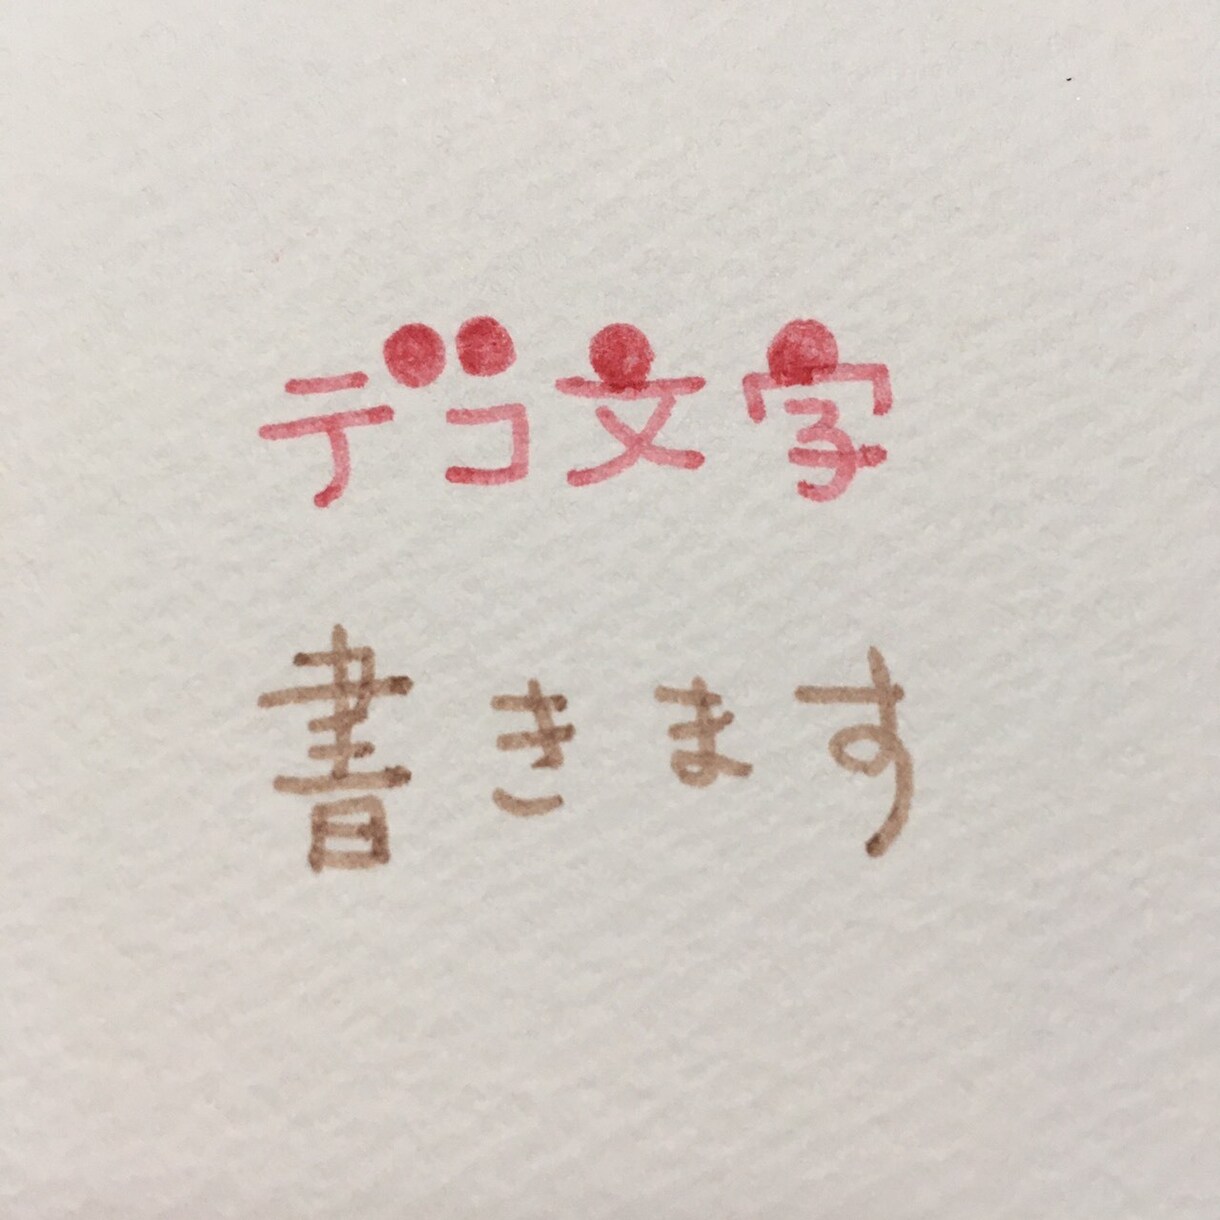 デコ文字
書きます